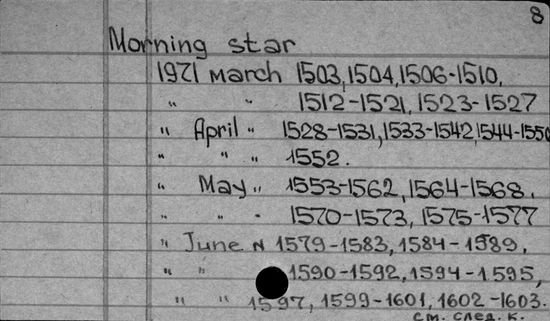 8
Morning star
1971 march 1503, 1504, 1506-1510,
" " 1512-1521, 1523-1527
" April " 1528-1531, 1533-1542, 1544-1550
" " " 1552.
" May " 1553-1562, 1564-1568.
" " " 1570-1573, 1575-1577
" June N 1579-1583, 1584-1589,
" " 1590-1592, 1594-1595,
" " 1597, 1599-1601, 1602-1603.
см. след. к.